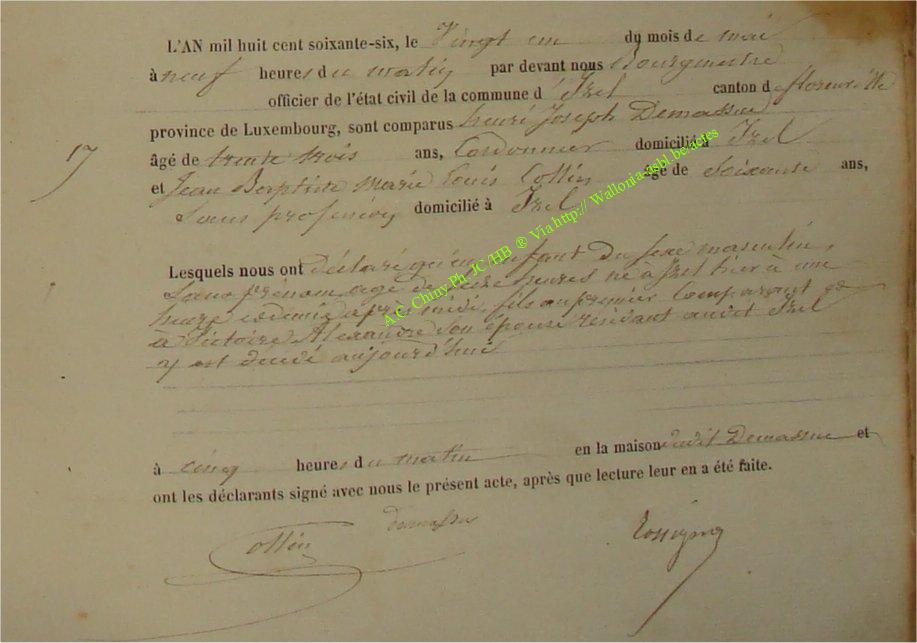 L'AN mil huit cent soixante-six, le Vingt un du mois de mai
à neuf heures du matin par devant nous Bourgmestre
officier de l'état civil de la commune d'Izel canton de florenville
province de Luxembourg, sont comparus henri Joseph Demasse
17
âgé de trente trois ans, Cordonnier domicilié à Izel
et Jean Baptiste Marie Louis Collin âgé de Soixante ans,
Sans profession domicilié à Izel
Lesquels nous ont déclaré qu'un enfant du sexe masculin,
Sans prénom, agé de heures né à Izel hier à une
heure et demie après midi, fils du premier Comparant et
à Victoire Alexandre Son épouse résidant audit Izel
y est décédé aujourd'hui
à cinq heures du matin en la maison dudit Demasse et
ont les déclarants signé avec nous le présent acte, après que lecture leur en a été faite.
Collin demasse Rossignon
A.C. Chiny Ph. JC/HB ® Via http:// Wallonia-asbl be/actes